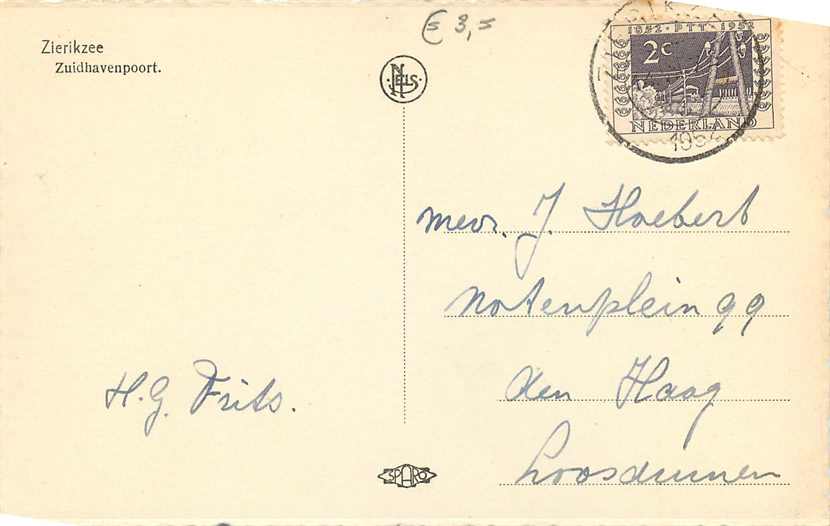 Zierikzee
Zuidhavenpoort.
€ 3,=
NELS
1852 · PTT · 1952
2c
NEDERLAND
1952
mevr. J. Hoebert
Notenplein 99
den Haag
Loosduinen
H. G. Frits.
SPARO